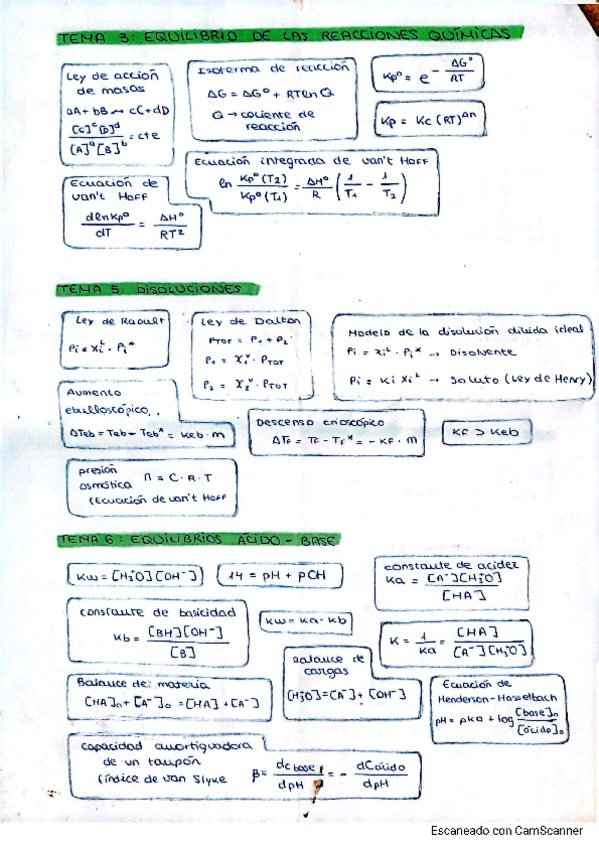 TEMA 3: EQUILIBRIO DE LAS REACCIONES QUÍMICAS
Ley de acción
de masas
aA + bB ⇌ cC + dD
[C]^c [D]^d / [A]^a [B]^b = cte
Isoterma de reacción
ΔG = ΔG° + RTlnQ
Q → cociente de
reacción
Kp° = e^(- ΔG° / RT)
Kp = Kc (RT)^Δn
Ecuación integrada de van't Hoff
ln Kp°(T2) / Kp°(T1) = ΔH° / R (1/T1 - 1/T2)
Ecuación de
van't Hoff
dlnKp° / dT = ΔH° / RT²
TEMA 5: DISOLUCIONES
Ley de Raoult
Pi = Xi^L · Pi*
Ley de Dalton
PTOT = P1 + P2
P1 = X1^v · PTOT
P2 = X2^v · PTOT
Modelo de la disolución diluida ideal
Pi = Xi^L · Pi* → Disolvente
Pi = Ki Xi^L → Soluto (Ley de Henry)
Aumento
ebulloscópico
ΔTeb = Teb - Teb* = Keb · m
Descenso crioscópico
ΔTf = Tf - Tf* = - Kf · m
Kf > Keb
presión
osmótica Π = C · R · T
(Ecuación de van't Hoff
TEMA 6: EQUILIBRIOS ÁCIDO - BASE
Kw = [H3O][OH⁻]
14 = pH + pOH
constante de acidez
Ka = [A⁻][H3O] / [HA]
constante de basicidad
Kb = [BH][OH⁻] / [B]
Kw = Ka · Kb
K = 1 / Ka = [HA] / [A⁻][H3O]
Balance de
cargas
[H3O] = [A⁻] + [OH⁻]
Balance de materia
[HA]0 + [A⁻]0 = [HA] + [A⁻]
Ecuación de
Henderson - Hasselbach
pH = pKa + log [base]0 / [ácido]0
capacidad amortiguadora
de un tampón
(índice de van Slyke
β = dCbase / dpH = - dCácido / dpH
Escaneado con CamScanner